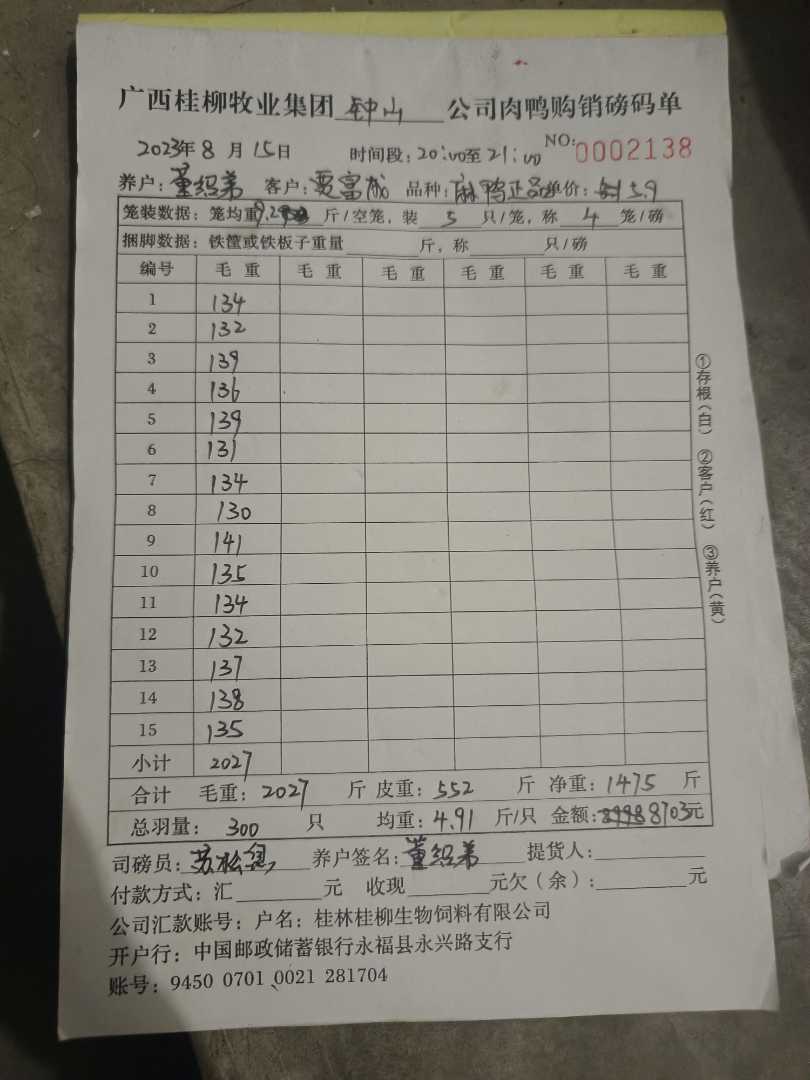 广西桂柳牧业集团 钟山 公司肉鸭购销磅码单
2023年8月15日 时间段：20:00至21:00 NO: 0002138
养户：董绍弟 客户：贾富成 品种：麻鸭正品 单价：5.9
笼装数据：笼均重9.2 斤/空笼，装 5 只/笼，称 4 笼/磅
捆脚数据：铁筐或铁板子重量 斤，称 只/磅
编号 毛重 毛重 毛重 毛重 毛重 毛重
1 134
2 132
3 139
4 136
5 139
6 131
7 134
8 130
9 141
10 135
11 134
12 132
13 137
14 138
15 135
小计 2027
合计 毛重：2027 斤 皮重：552 斤 净重：1475 斤
总羽量：300 只 均重：4.91 斤/只 金额：8703元
司磅员：苏松 养户签名：董绍弟 提货人：
付款方式：汇 元 收现 元欠（余）： 元
公司汇款账号：户名：桂林桂柳生物饲料有限公司
开户行：中国邮政储蓄银行永福县永兴路支行
账号：9450 0701 0021 281704
①存根（白） ②客户（红） ③养户（黄）